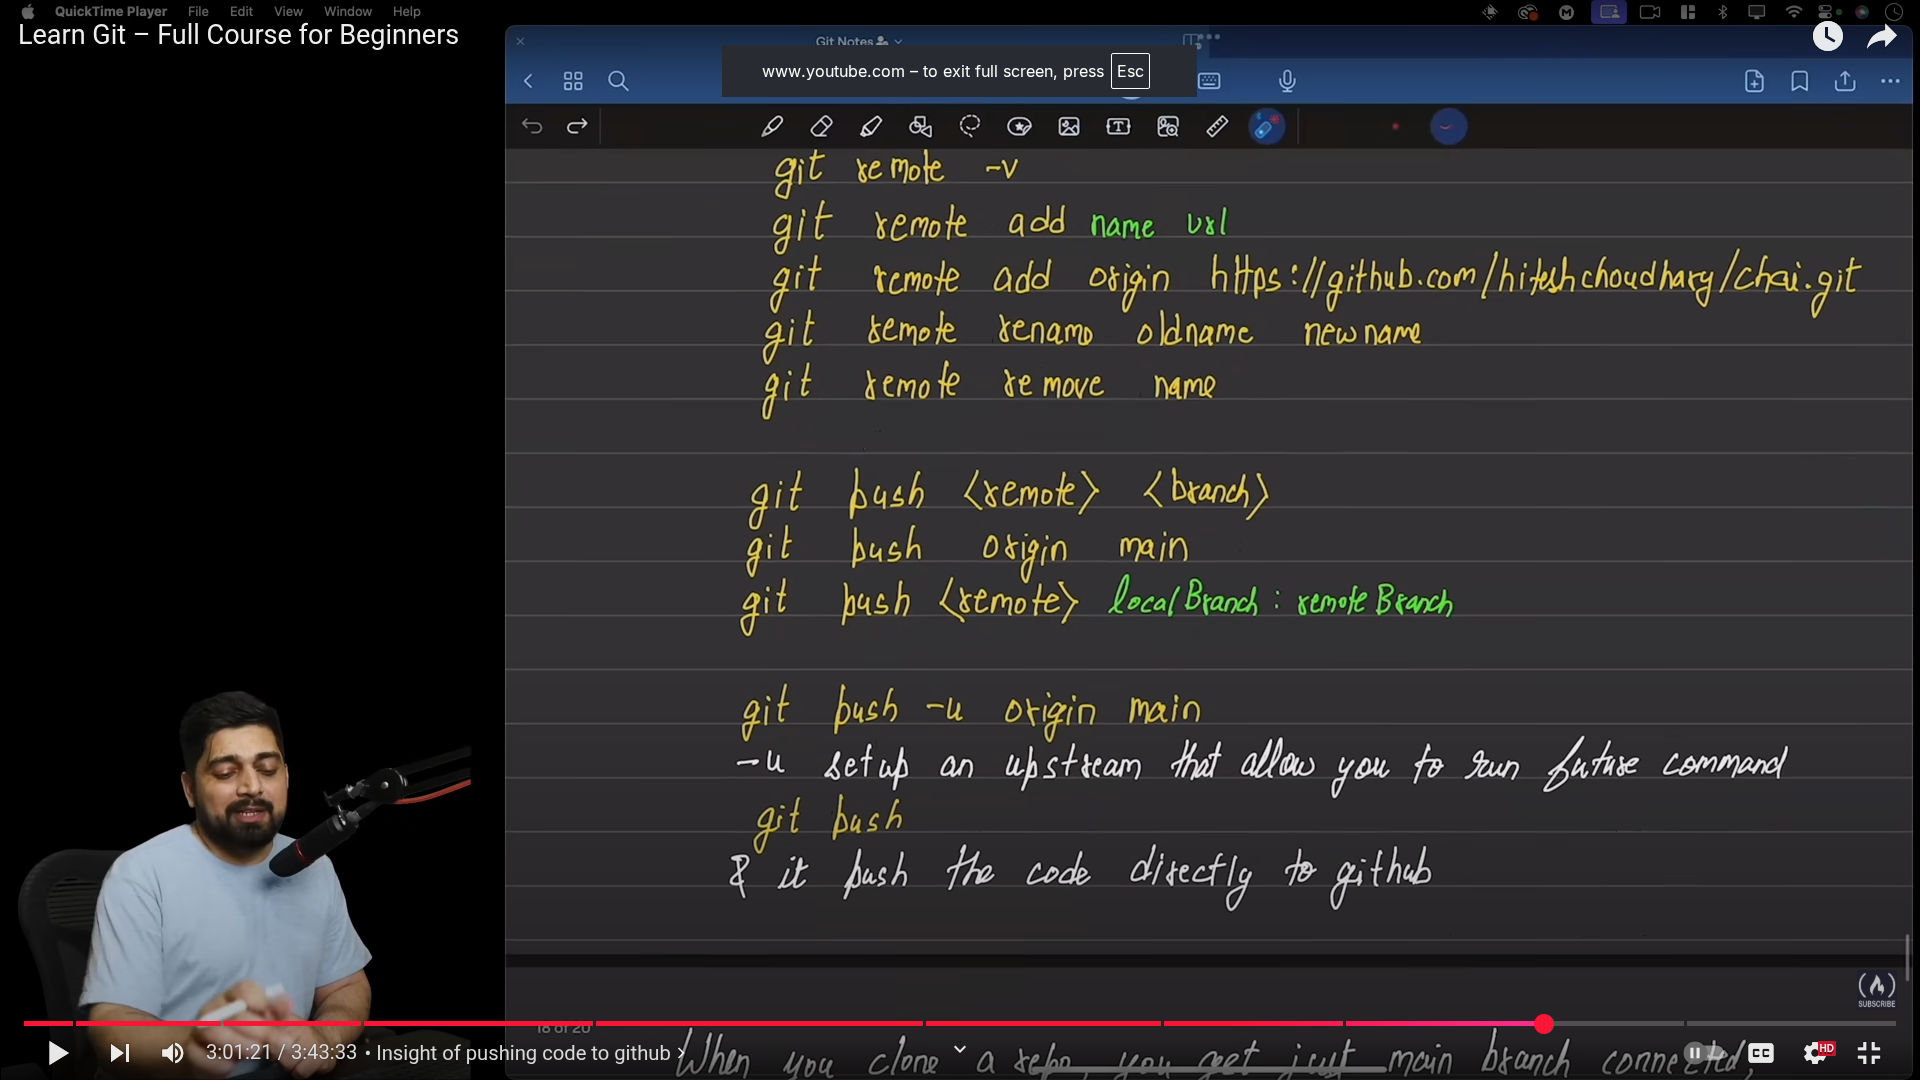 QuickTime Player File Edit View Window Help
Learn Git – Full Course for Beginners
Git Notes
www.youtube.com – to exit full screen, press Esc
git remote -v
git remote add name url
git remote add origin https://github.com/hiteshchoudhary/chai.git
git remote rename oldname newname
git remote remove name
git push <remote> <branch>
git push origin main
git push <remote> localBranch : remoteBranch
git push -u origin main
-u setup an upstream that allow you to run future command
git push
& it push the code directly to github
SUBSCRIBE
18 of 20
3:01:21 / 3:43:33 • Insight of pushing code to github
When you clone a repo, you get just main branch connected,
CC
HD